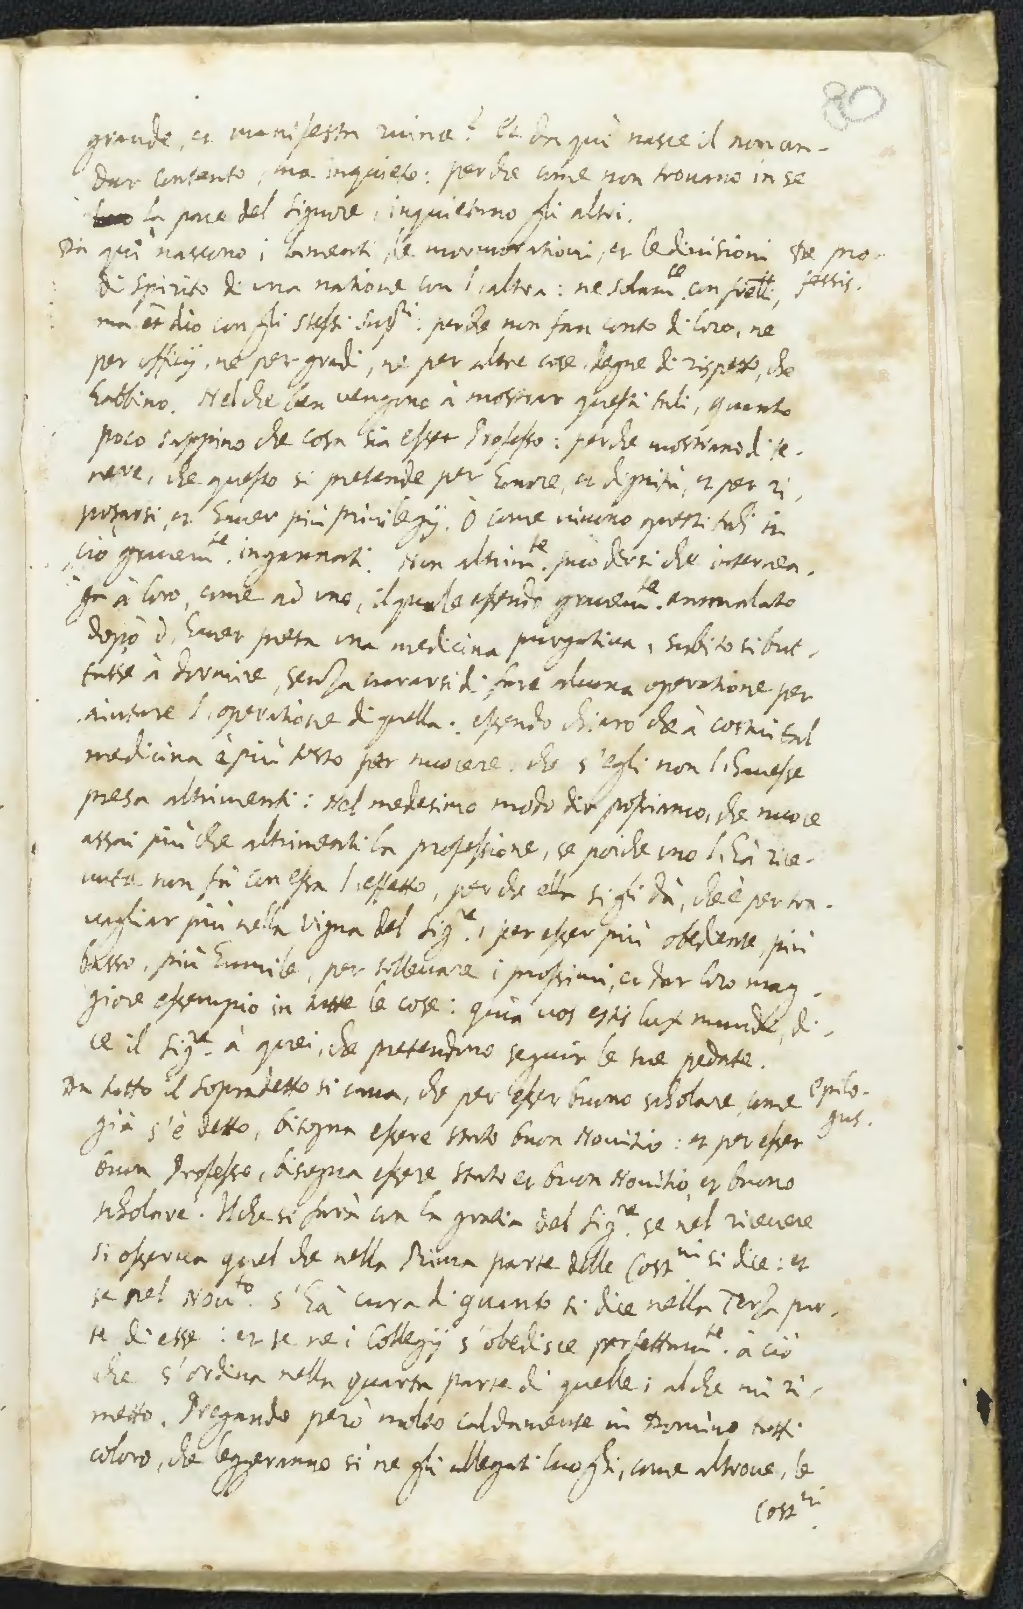 80
grande, et manifesta ruina? Et da qui nasce il non an-
dar contento, ma inquieto: perche come non trovano in se
la pace del Signore, inquietano gli altri.
Da qui nascono i lamenti, le mormorationi, et le divisioni
De pro-
fessis.
di spirito di una natione con l'altra: ne solam.te con fr̃elli,
ma et dio con gli stessi Sup.ri: perche non fan conto di loro, ne
per officij, ne per gradi, ne per altre cose degne di rispetto, che
habbino. Nel che ben vengono à mostrar questi tali, quanto
poco sappino che cosa sia esser Professo: perche mostrano di te-
nere, che questo si pretende per honore, et dignità, et per ri-
posarsi, et haver più privilegij. O come vivono questi tali in
ciò gravem.te ingannati. Non altrim.te può dirsi che interven-
ga à loro, come ad uno, il quale essendo gravem.te ammalato
dopò d'haver presa una medicina purgativa, subito si but-
tasse à dormire, senza curarsi di fare alcuna operatione per
aiutare l'operatione di quella: essendo chiaro che à costui tal
medicina è più tosto per nuocere, che s'egli non l'havesse
presa altrimenti: Nel medesimo modo dir possiamo, che nuoce
assai più che altrimenti la professione, se poiche uno l'hà rice-
vuta non fà con essa l'effetto, perche ella si gli dà, che è per tra-
vagliar più nella vigna del Sig.re, per esser più obediente, più
basso, più humile, per sollevare i prossimi, et dar loro mag-
giore essempio in tutte le cose: quia vos estis lux mundi, di-
ce il Sig.re à quei, che pretendono seguir le sue pedate.
Da tutto il sopradetto si cava, che per esser buono scholare, come
Epilo-
gus.
già s'è detto, bisogna essere stato buon Novitio: et per esser
buon Professo, bisogna essere stato et buon Novitio et buono
scholare. Il che si farà con la gratia del Sig.re se nel ricevere
si osserva quel che nella Prima parte delle Cost.ni si dice: et
se nel Nov.to s'hà cura di quanto si dice nella Terza par-
te di esse: et se ne i Collegij s'obedisce perfettam.te à ciò
che s'ordina nella quarta parte di quelle: al che mi ri-
metto. Pregando però molto caldamente in Domino tutti
coloro, che leggeranno si ne gli allegati luoghi, come altrove, le
Cost.ni